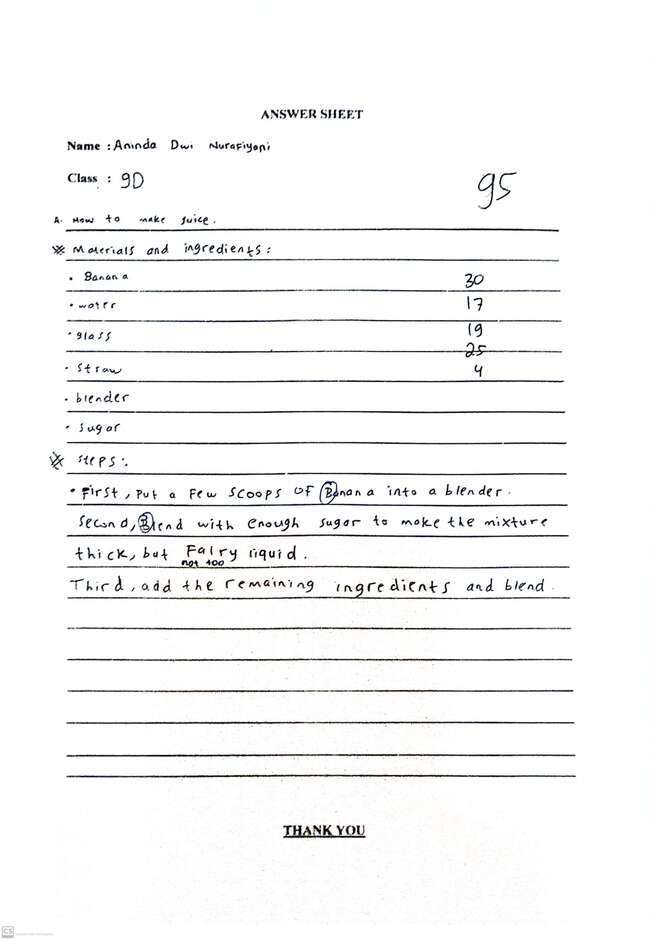 ANSWER SHEET
Name : Aninda Dwi Nurafiyani
Class : 9D
95
A. How to make juice.
※ Materials and ingredients :
• Banana
30
• water
17
• glass
19
25
• straw
4
• blender
• sugar
※ Steps :
• First, put a few scoops of Banana into a blender.
Second, Blend with enough sugar to make the mixture
thick, but Falry liquid.
not too
Third, add the remaining ingredients and blend.
THANK YOU
CS